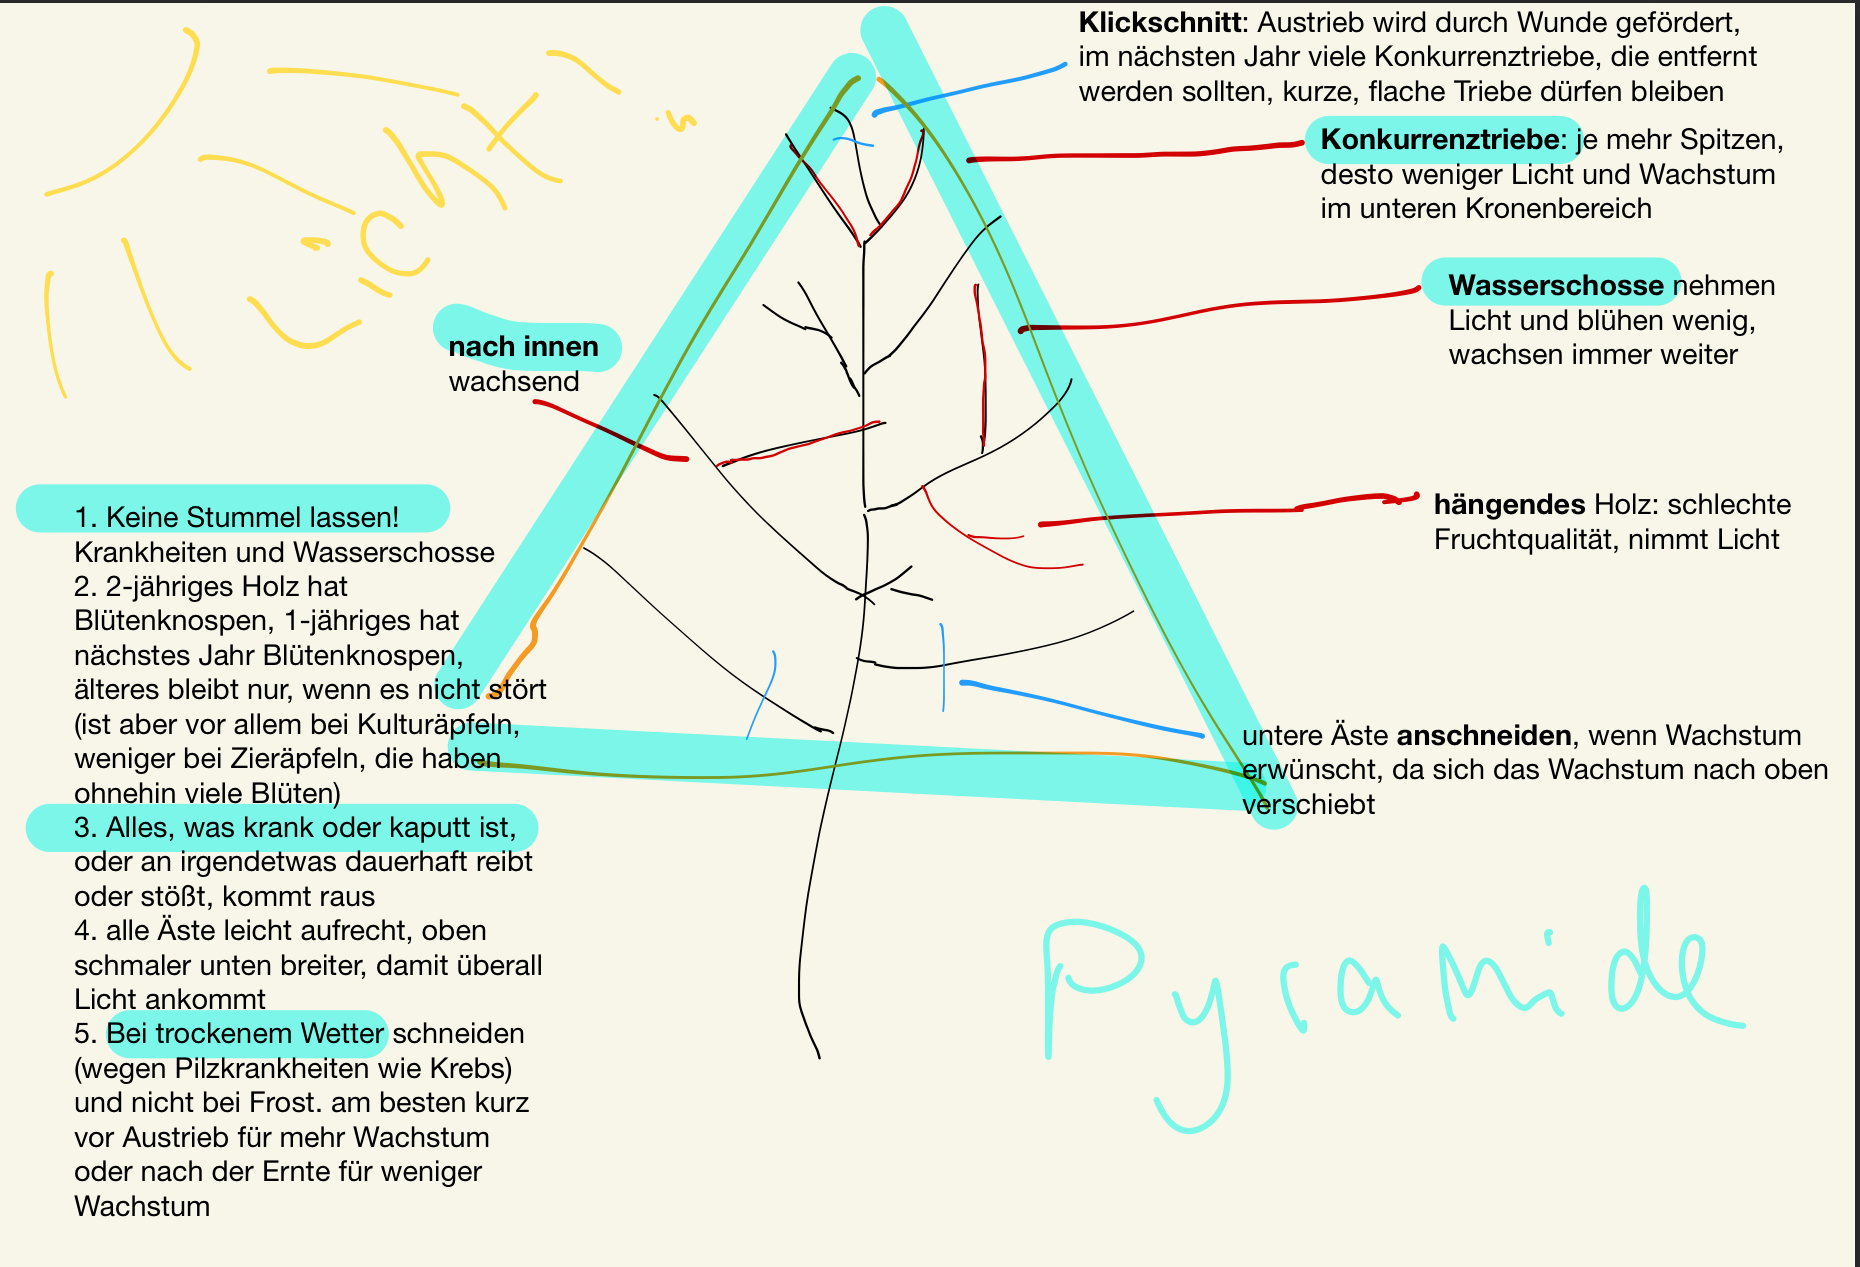 Klickschnitt: Austrieb wird durch Wunde gefördert,
im nächsten Jahr viele Konkurrenztriebe, die entfernt
werden sollten, kurze, flache Triebe dürfen bleiben
Konkurrenztriebe: je mehr Spitzen,
desto weniger Licht und Wachstum
im unteren Kronenbereich
Wasserschosse nehmen
Licht und blühen wenig,
wachsen immer weiter
hängendes Holz: schlechte
Fruchtqualität, nimmt Licht
untere Äste anschneiden, wenn Wachstum
erwünscht, da sich das Wachstum nach oben
verschiebt
Licht
nach innen
wachsend
1. Keine Stummel lassen!
Krankheiten und Wasserschosse
2. 2-jähriges Holz hat
Blütenknospen, 1-jähriges hat
nächstes Jahr Blütenknospen,
älteres bleibt nur, wenn es nicht stört
(ist aber vor allem bei Kulturäpfeln,
weniger bei Zieräpfeln, die haben
ohnehin viele Blüten)
3. Alles, was krank oder kaputt ist,
oder an irgendetwas dauerhaft reibt
oder stößt, kommt raus
4. alle Äste leicht aufrecht, oben
schmaler unten breiter, damit überall
Licht ankommt
5. Bei trockenem Wetter schneiden
(wegen Pilzkrankheiten wie Krebs)
und nicht bei Frost. am besten kurz
vor Austrieb für mehr Wachstum
oder nach der Ernte für weniger
Wachstum
Pyramide